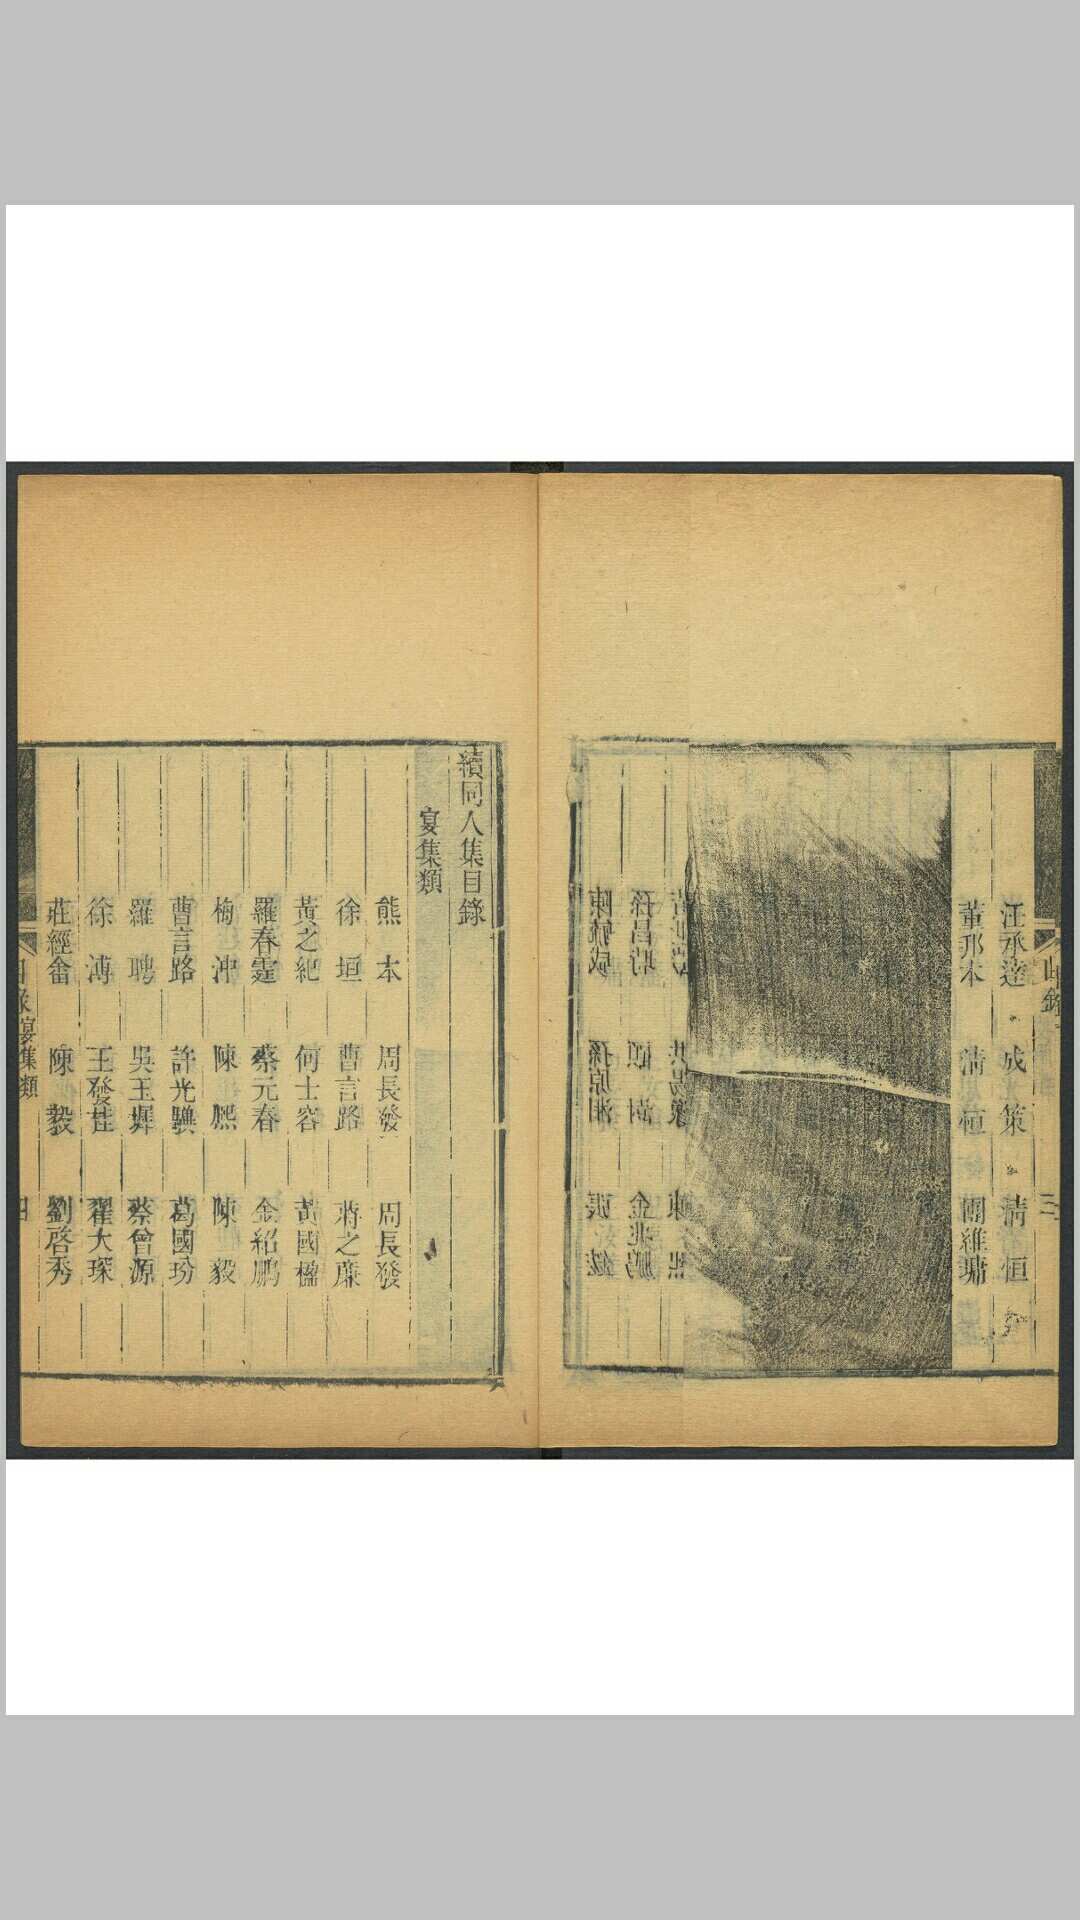 汪承達 成策 清恒
董邦本 清恒 團維墉
續同人集目錄
宴集類
熊本 周長發 周長發
徐垣 曹言路 蔣之𢋫
黃之紀 何士容 黃國楹
羅春霆 蔡元春 金紹鵬
梅沖 陳熙 陳毅
曹言路 許光驥 葛國玢
羅聘 吳玉墀 蔡曾源
徐溥 王發桂 翟大琛
莊經畬 陳毅 劉啓秀
目錄宴集類 四